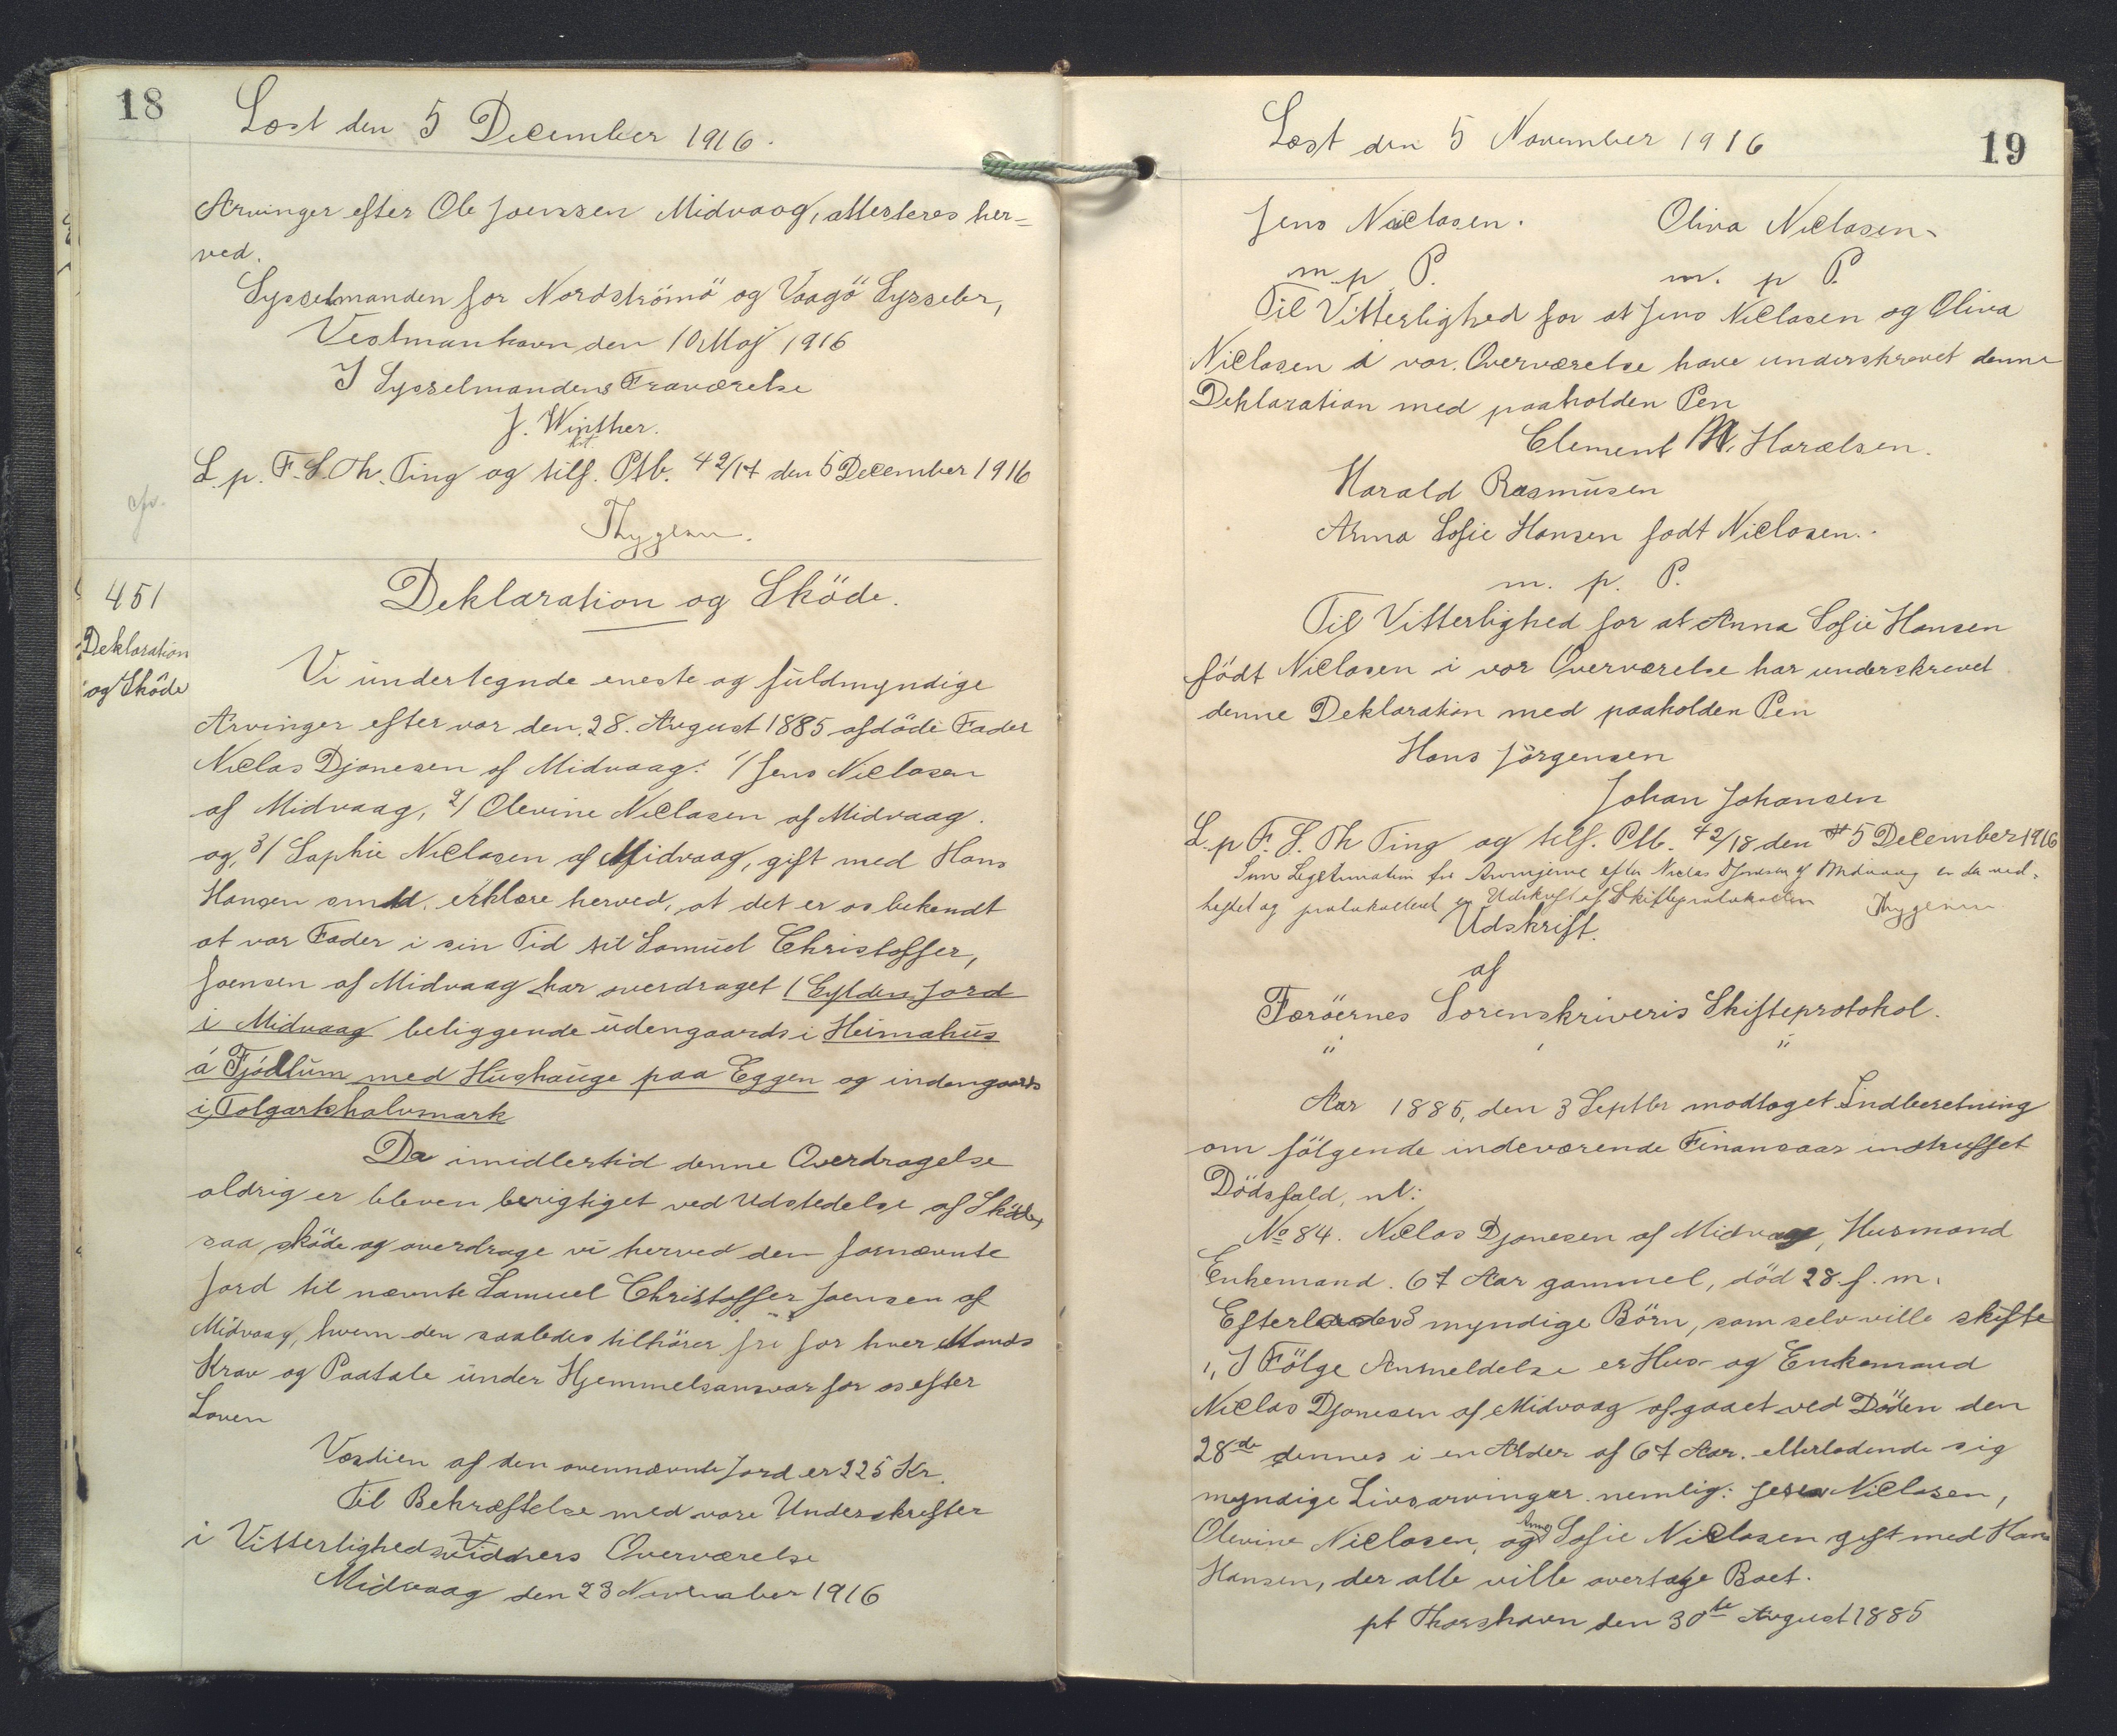 18
Læst den 5 December 1916.
Arvinger efter Ole Joenssen Midvaag, attesteres her-
ved.
Sysselmanden for Nordströmö og Vaagö Sysseler,
Vestmanhavn den 10 Maj 1916
I Sysselmandens Fraværelse
J. Winther.
kst.
L. p. F. S. Th. Ting og tilf. Ptb. 42/17 den 5 December 1916
Thygesen.
451
Deklaration
og Sköde
Deklaration og Sköde.
Vi undertegnde eneste og fuldmyndige
Arvinger efter vor den 28. August 1885 afdöde Fader
Niclas Djonesen af Midvaag: 1/ Jens Niclasen
af Midvaag, 2/ Olevine Niclasen af Midvaag.
og, 3/ Saphie Niclasen af Midvaag, gift med Hans
Hansen smstd. erklære herved, at det er os bekendt
at vor Fader i sin Tid til Samuel Christoffer,
Joensen af Midvaag har overdraget 1 Gylden Jord
i Midvaag beliggende udengaards i Heimahus
á Fjödlum med Hushauge paa Eggen og indengaards
i Tolgarkhalvmark
Da imidlertid denne Overdragelse
aldrig er bleven berigtiget ved Udstedelse af Sköde,
saa sköde og overdrage vi herved den fornævnte
Jord til nævnte Samuel Christoffer Joensen af
Midvaag, hvem den saaledes tilhörer fri for hver Mands
Krav og Paatale under Hjemmelsansvar for os efter
Loven
Værdien af den ovennævnte Jord er 225 Kr.
Til Bekræftelse med vore Underskrifter
i Vitterlighedsvidners Overværelse
Midvaag den 23 November 1916
Læst den 5 November 1916
19
Jens Niclasen. Oliva Niclasen
m. p. P. m. p P.
Til Vitterlighed for at Jens Niclasen og Oliva
Niclasen i vor Overværelse have underskrevet denne
Deklaration med paaholden Pen
Clement M. Haraldsen.
Harald Rasmusen
Anna Sofie Hansen født Niclasen.
m. p. P.
Til Vitterlighed for at Anna Sofie Hansen
födt Niclasen i vor Overværelse har underskrevet
denne Deklaration med paaholden Pen
Hans Jörgensen
Johan Johansen
L. p F. S. Th Ting og tilf. Ptb. 42/18 den 5 December 1916
Som Legitimation for Arvingerne efter Niclas Djonesen af Midvaag er der ved-
heftet og protokolleret en Udskrift af Skifteprotokollen Thygesen
Udskrift.
af
Færöernes Sorenskriveris Skifteprotokol.
Aar 1885, den 3 Septbr modtaget Indberetning
om fölgende indeværende Finansaar indtruffet
Dödsfald, nl:
No 84. Niclas Djonesen af Midvaag, Husmand
Enkemand. 67 Aar gammel, död 28. f. m.
Efterlader 3 myndige Börn, som selv ville skifte
1, I Fölge Anmeldelse er Hus- og Enkemand
Niclas Djonesen af Midvaag afgaaet ved Döden den
28de dennes i en Alder af 67 Aar. efterladende sig
myndige Livsarvinger. nemlig: Jens Niclasen,
Olevine Niclasen, og Anna Sofie Niclasen gift med Hans
Hansen, der alle ville overtage Boet.
pt Thorshavn den 30te August 1885